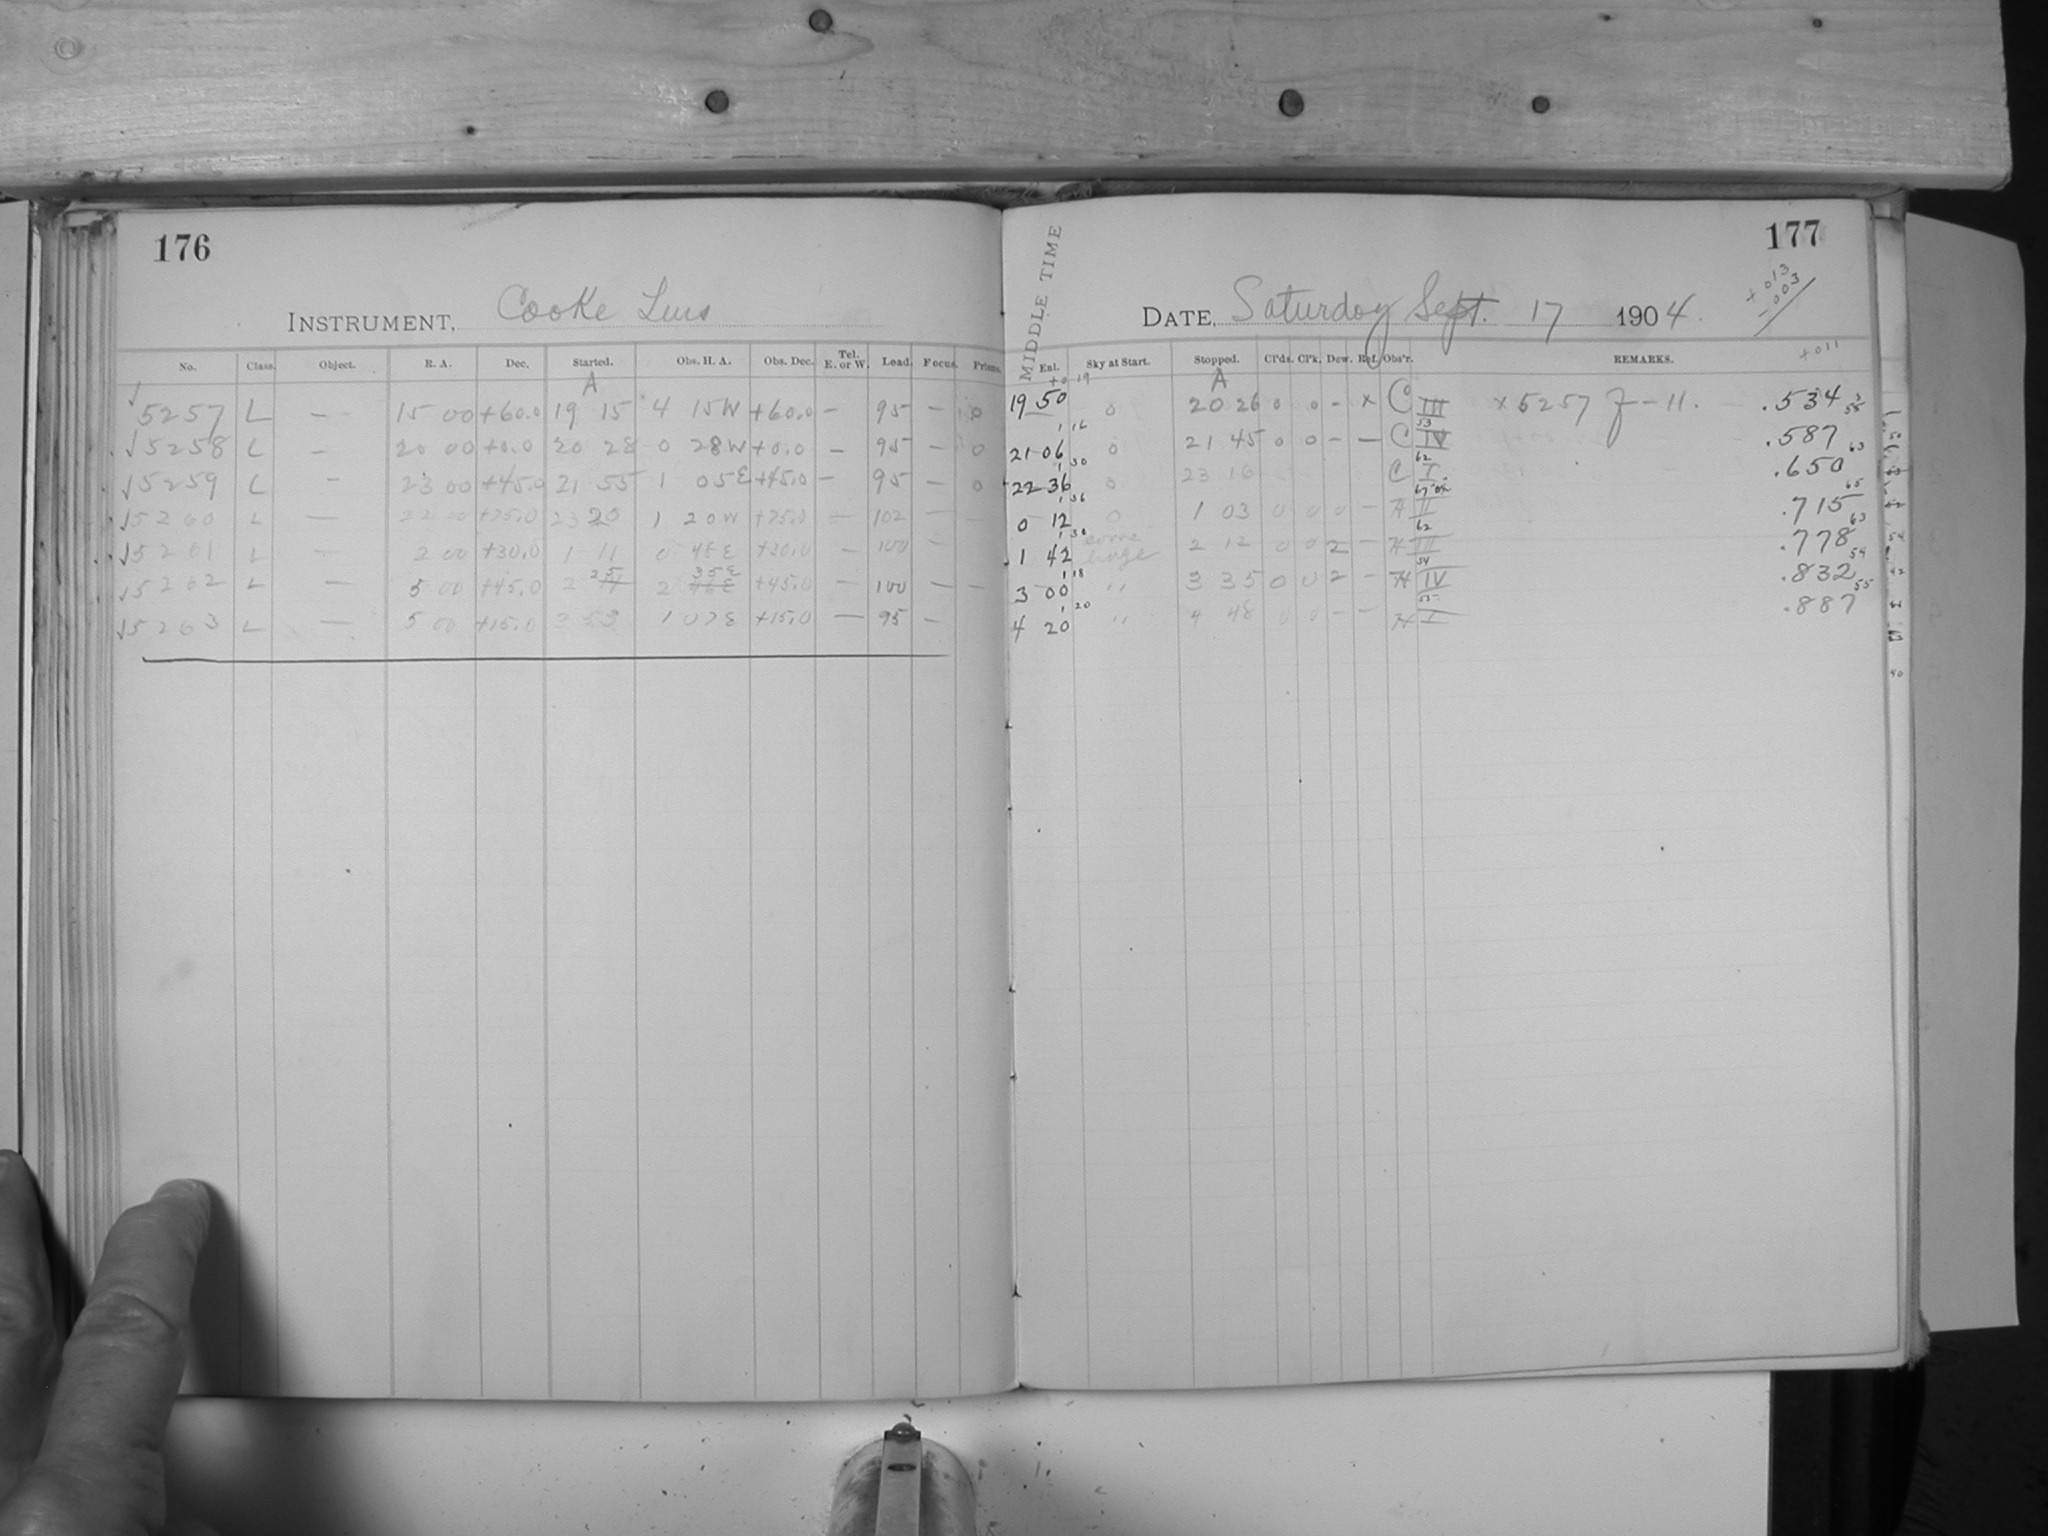 176
INSTRUMENT, Cooke Lens
No. Class. Object. R. A. Dec. Started. Obs. H. A. Obs. Dec. Tel. E. or W. Lead. Focus. Prisms.
A
√5257 L — 15 00 +60.0 19 15 4 15W +60.0 — 95 — 0
√5258 L — 20 00 +0.0 20 28 0 28W +0.0 — 95 — 0
√5259 L — 23 00 +45.0 21 55 1 05E +45.0 — 95 — 0
√5260 L — 22 00 +75.0 23 20 1 20W +75.0 — 102 —
√5261 L — 2 00 +30.0 1 11 0 48E +30.0 — 100 —
√5262 L — 5 00 +45.0 2 25 2 35E +45.0 — 100 — —
√5263 L — 5 00 +15.0 3 53 1 07E +15.0 — 95 —
177
+013
-003
DATE, Saturday Sept. 17 1904.
+011
MIDDLE TIME
Enl. Sky at Start. Stopped. Cl'ds. Cl'k. Dew. Rej. Obs'r. REMARKS.
A
19 50 0 20 26 0 0 - x C III x 5257 J-11. .534
53
21 06 0 21 45 0 0 - — C IV .587
62
22 36 0 23 16 C I .650
0 12 0 1 03 0 0 0 - H II .715
62
1 42 some haze 2 12 0 0 2 - H III .778
54
3 00 " 3 35 0 0 2 - H IV .832
55
4 20 " 4 48 0 0 - - H I .887